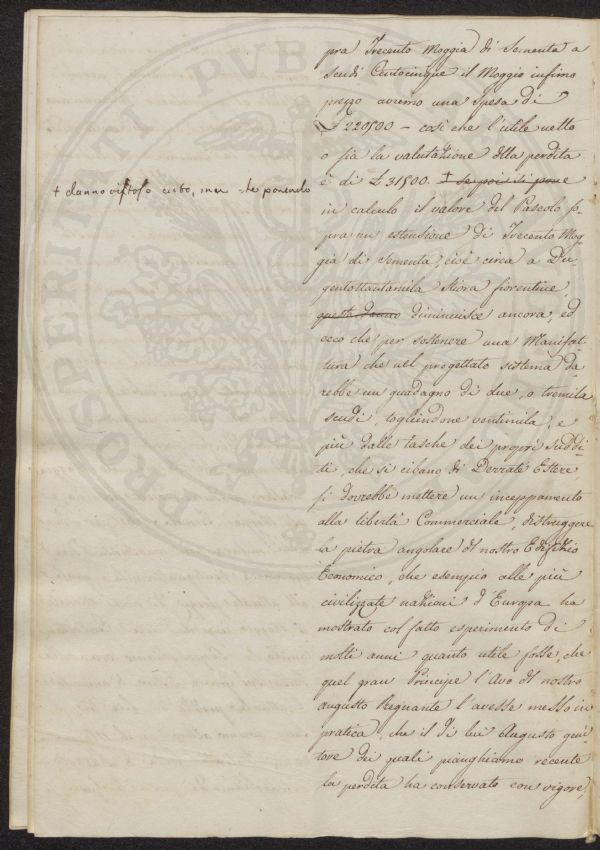 pra Trecento Moggia di Sementa a
Scudi Centocinque il Moggio infimo
prezzo avremo una spesa di
£ 220500 – così che l'utile netto
o sia la valutazione della perdita
è di £ 31500. + se poi si pone
+ danno vistoso
in calcolo il valore del Pascolo so
pra un estensione di Trecento Mog
gia di Sementa, cioè circa a Du
gentottantamila Stiora fiorentine,
questo danno diminuisce ancora, ed
ecco che per sostenere una Manifat
tura che nel progettato sistema da
rebbe un guadagno di due, o tremila
scudi, togliendone ventimila, e
più dalle tasche dei proprj suddi
ti, che si cibano di Derrate Estere,
si dovrebbe mettere un inceppamento
alla libertà Commerciale, distruggere
la pietra angolare del nostro Edifizio
Economico, che esempio alle più
civilizzate nazioni d'Europa ha
mostrato col fatto esperimento di
molti anni quanto utile fosse, che
quel gran Principe l'Avo del nostro
augusto Regnante l'avesse messo in
pratica, che il di lui Augusto geni
tore dei quali pianghiamo recente
la perdita ha conservato con vigore,
PROSPERITATI PUBLICAE